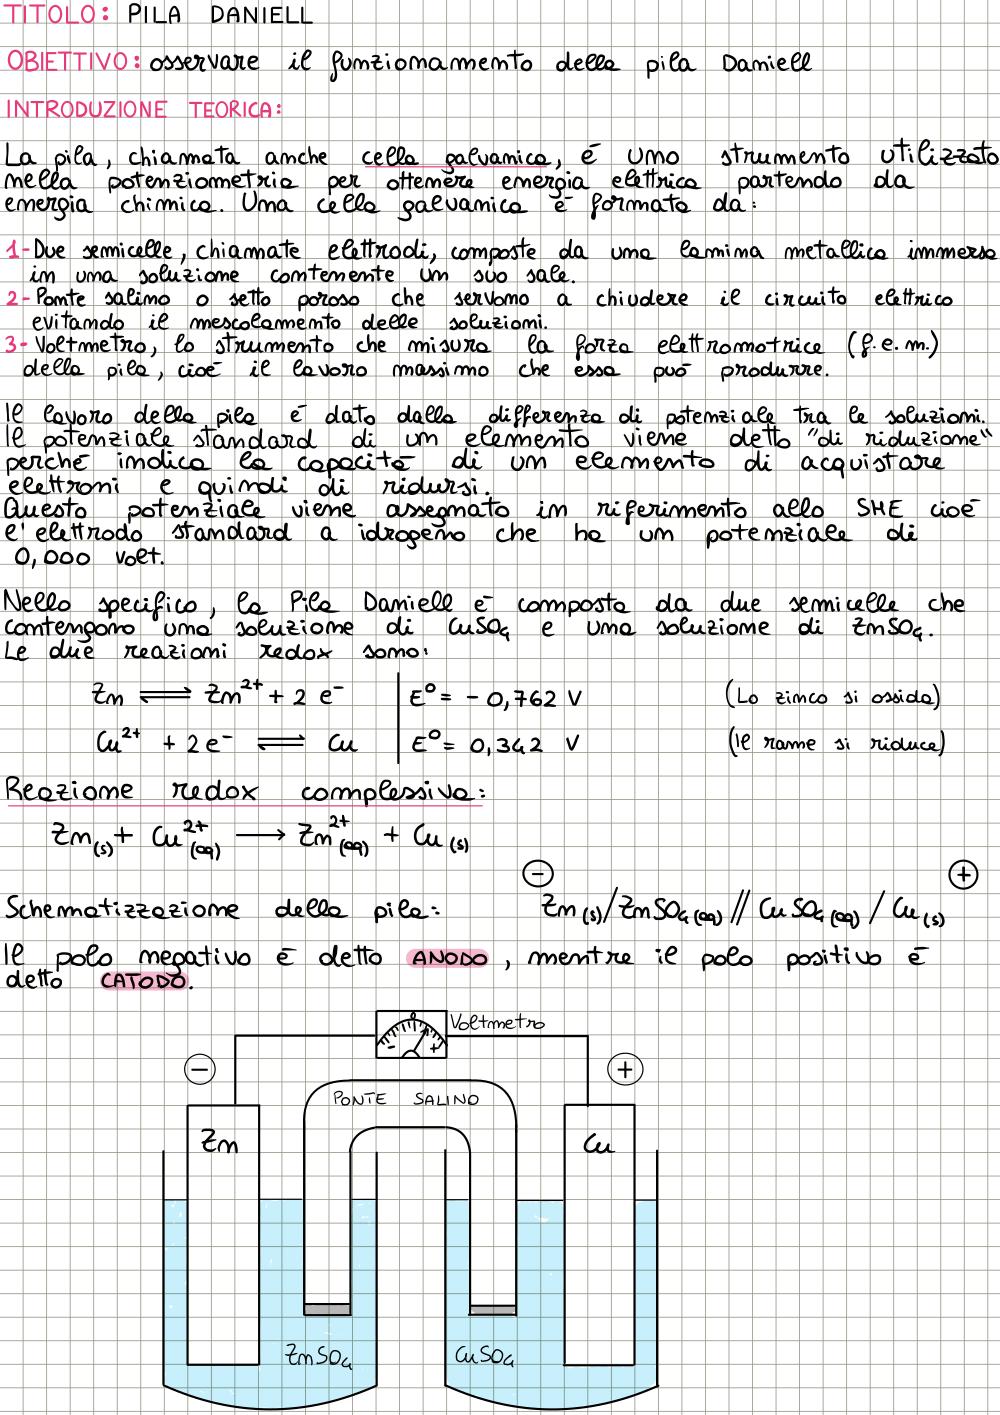 TITOLO: PILA DANIELL
OBIETTIVO: osservare il funzionamento della pila Daniell
INTRODUZIONE TEORICA:
La pila, chiamata anche cella galvanica, é uno strumento utilizzato
nella potenziometria per ottenere energia elettrica partendo da
energia chimica. Una cella galvanica é formata da:
1- Due semicelle, chiamate elettrodi, composte da una lamina metallica immersa
in una soluzione contenente un suo sale.
2- Ponte salino o setto poroso che servono a chiudere il circuito elettrico
evitando il mescolamento delle soluzioni.
3- Voltmetro, lo strumento che misura la forza elettromotrice (f.e.m.)
della pila, cioé il lavoro massimo che essa può produrre.
Il lavoro della pila é dato dalla differenza di potenziale tra le soluzioni.
Il potenziale standard di un elemento viene detto "di riduzione"
perché indica la capacità di un elemento di acquistare
elettroni e quindi di ridursi.
Questo potenziale viene assegnato in riferimento allo SHE cioé
l'elettrodo standard a idrogeno che ha un potenziale di
0,000 volt.
Nello specifico, la Pila Daniell é composta da due semicelle che
contengono una soluzione di CuSO₄ e una soluzione di ZnSO₄.
Le due reazioni redox sono:
Zn ⇌ Zn²⁺ + 2 e⁻ | E° = - 0,762 V (Lo zinco si ossida)
Cu²⁺ + 2 e⁻ ⇌ Cu | E° = 0,342 V (Il rame si riduce)
Reazione redox complessiva:
Zn(s) + Cu²⁺(aq) → Zn²⁺(aq) + Cu(s)
⊖ ⊕
Schematizzazione della pila: Zn(s)/ZnSO₄(aq)//CuSO₄(aq)/Cu(s)
Il polo negativo é detto ANODO, mentre il polo positivo é
detto CATODO.
0
Voltmetro
- +
⊖ ⊕
PONTE SALINO
Zn Cu
ZnSO₄ CuSO₄